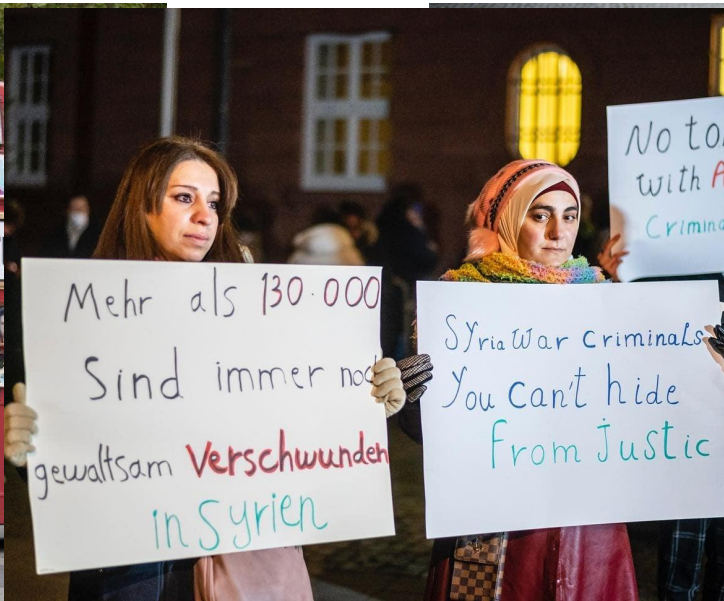 Mehr als 130.000
Sind immer noch
gewaltsam Verschwunden
in Syrien
Syria War criminals
You can't hide
From Justic
No to
with
Crimin